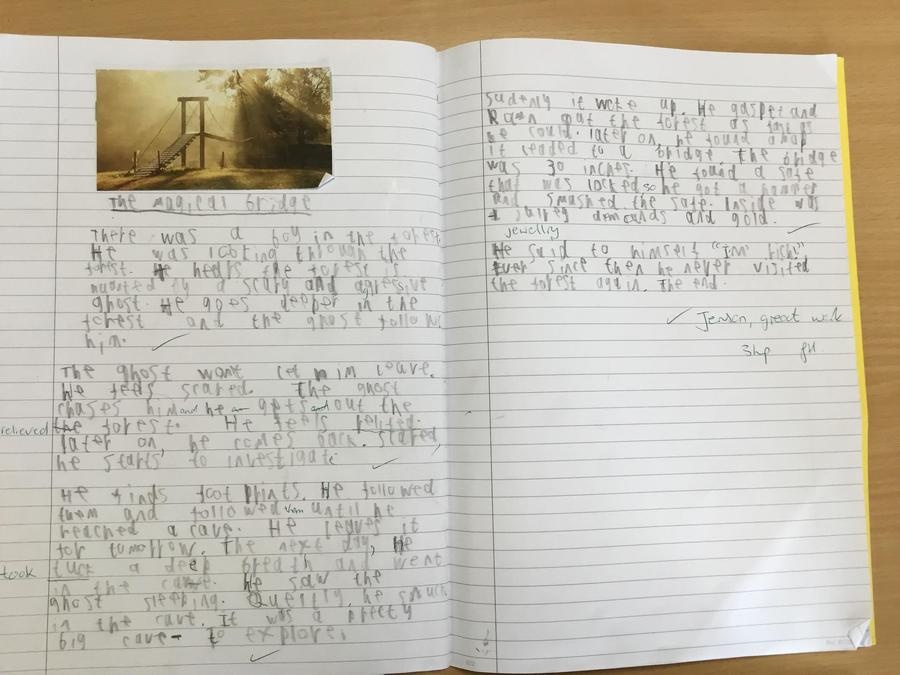 The magical bridge
There was a boy in the forest.
He was looking through the
forest. He hears the forest is
by a scary and aggressive
ghost. He goes deeper in the
forest and the ghost follows
him.
The ghost want let him leave.
He feels scared. The ghost
chases him and he gets out the
relieved
the forest. He feels relifed.
later on, he comes back. Scared,
he starts to investigate
He finds foot prints. He followed
them and followed them until he
reached a cave. He leaves it
for tomorrow. The next day, He
took
tuck a deep breath and went
in the cave. He saw the
ghost sleeping. Quietly, he snuck
in the cave. It was a pretty
big cave to explore.
sudenly it woke up. He gaspet and
Ran out the forest as fast as
he could. later on, he found a map
it leaded to a bridge. The bridge
was 30 inches. He found a safe
that was locked so he got a hammer
and smashed the safe. Inside was
and gold.
jewellry
He said to himself "I'm rich!"
Ever since then he never visited
the forest again. The end.
great work
3hp